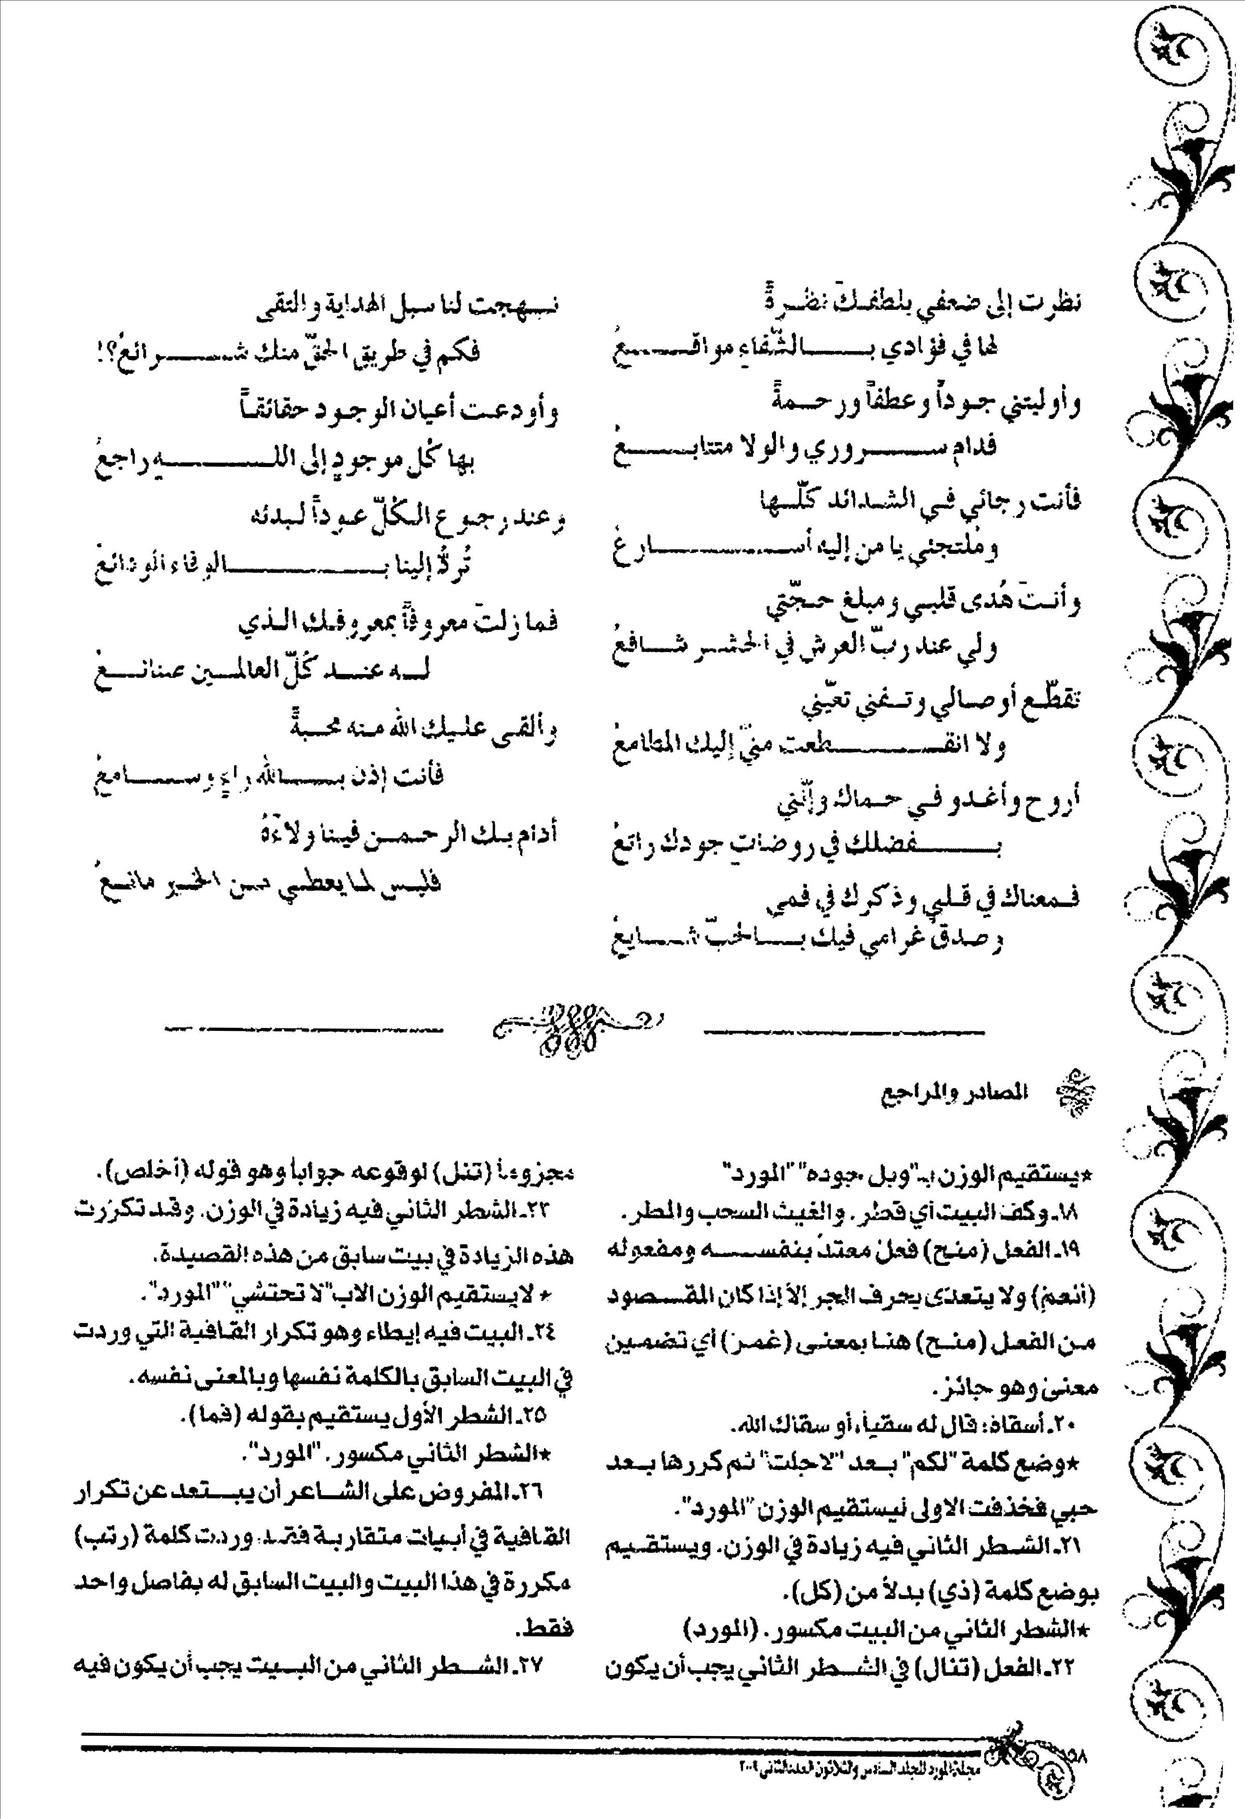 نظرت إلى ضعفي بلطفكَ نظرةً
لها في فؤادي بالشّفاءِ مواقعُ
وأوليتني جوداً وعطفاً ورحمةً
فدام سروري والولا متتابعُ
فأنت رجائي في الشدائد كلّها
ومُلتجئي يا من إليه أسارعُ
وأنتَ هُدى قلبي ومبلغ حجّتي
ولي عند ربّ العرش في الحشر شافعُ
تقطّع أوصالي وتفنى تعيّني
ولا انقطعت منيّ إليك المطامعُ
أروح وأغدو في حماك وإنّني
بفضلك في روضاتِ جودك راتعُ
فمعناك في قلبي وذكرك في فمي
وصدقُ غرامي فيك بالحبّ شايعُ
نهجت لنا سبل الهداية والتقى
فكم في طريق الحقّ منك شرائعُ؟!
وأودعت أعيان الوجود حقائقاً
بها كُل موجودٍ إلى اللهِ راجعُ
وعند رجوع الكُلّ عوداً لبدئه
تُردُّ إلينا بالوفاء الودائعُ
فما زلتَ معروفاً بمعروفك الذي
له عند كُلّ العالمين صنائعُ
وألقى عليك الله منه محبةً
فأنت إذن بالله راءٍ وسامعُ
أدام بك الرحمن فينا ولاءَهُ
فليس لما يعطي من الخير مانعُ
المصادر والمراجع
*يستقيم الوزن بـ"وبل جوده" "المورد"
١٨ـ وكف البيت أي قطر. والغيث السحب والمطر.
١٩ـ الفعل (منح) فعل معتدّ بنفسه ومفعوله
(أنعم) ولا يتعدى بحرف الجر إلا إذا كان المقصود
من الفعل (منح) هنا بمعنى (غمر) أي تضمين
معنى وهو جائز.
٢٠ـ أسقاه: قال له سقياً، أو سقاك الله.
*وضع كلمة "لكم" بعد "لاحلت" ثم كررها بعد
حبي فخذفت الاولى ليستقيم الوزن "المورد".
٢١ـ الشطر الثاني فيه زيادة في الوزن. ويستقيم
بوضع كلمة (ذي) بدلاً من (كل).
*الشطر الثاني من البيت مكسور. (المورد)
٢٢ـ الفعل (تنال) في الشطر الثاني يجب أن يكون
مجزوماً (تنل) لوقوعه جواباً وهو قوله (أخلص).
٢٣ـ الشطر الثاني فيه زيادة في الوزن. وقد تكررت
هذه الزيادة في بيت سابق من هذه القصيدة.
* لايستقيم الوزن الاب"لا تحتشي" "المورد".
٢٤ـ البيت فيه إيطاء وهو تكرار القافية التي وردت
في البيت السابق بالكلمة نفسها وبالمعنى نفسه.
٢٥ـ الشطر الأول يستقيم بقوله (فما).
*الشطر الثاني مكسور. "المورد".
٢٦ـ المفروض على الشاعر أن يبتعد عن تكرار
القافية في أبيات متقاربة فقد وردت كلمة (رتب)
مكررة في هذا البيت والبيت السابق له بفاصل واحد
فقط.
٢٧ـ الشطر الثاني من البيت يجب أن يكون فيه
مجلة المورد المجلد السادس والثلاثون العدد الثاني ٢٠٠٩